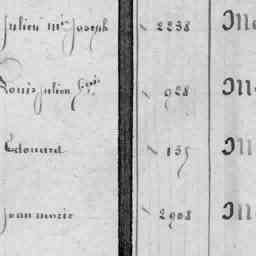 Julien Mie Joseph 2238
Louis Julien 928
Edouard 135
Jean Marie 2908